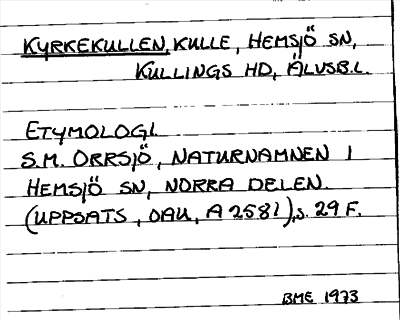 KYRKEKULLEN, KULLE, HEMSJÖ SN,
KULLINGS HD, ÄLVSB.L.
ETYMOLOGI.
S.M. ORRSJÖ, NATURNAMNEN I
HEMSJÖ SN, NORRA DELEN.
(UPPSATS, OAU, A 2581), s. 29 F.
BME 1973